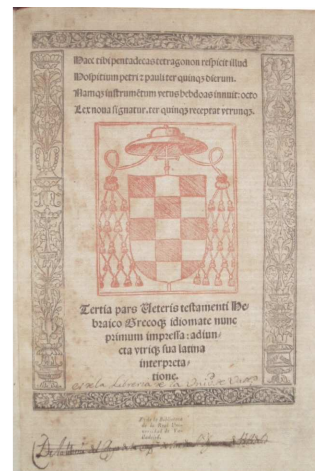 Haec tibi pentadecas tetragonon respicit illud
Hospitium petri ⁊ pauli ter quinqꝫ dierum.
Namqꝫ instrumētum vetus hebdoas innuit: octo
Lex noua signatur. ter quinqꝫ receptat vtrunqꝫ.
Tertia pars Veteris testamenti He-
braico Grecoqꝫ idiomate nunc
primum impressa: adiun-
cta vtriqꝫ sua latina
interpreta-
tione.
es de la libreria de la
de la Real